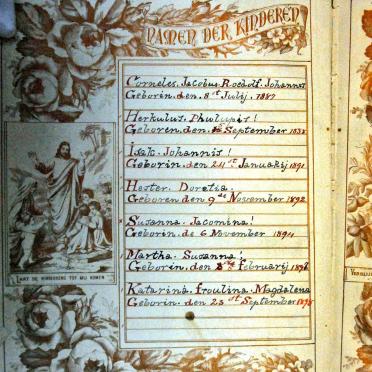 NAMEN DER KINDEREN
Corneles. Jacobus. Roedolf. Johannes
Geborin. den. 8st Julij. 1887
Herkulus. Phulippis!
Geboren. den. September 1888
Isak. Johannis!
Geborin. de 24st Januarij 1891
Hester. Doretia.
Geboren den 9de November 1892
Susanna. Jacomina!
Geborin. de 6 November 1894
Martha. Susanna;
Geborin. de Februarij 1896
Katarina. Froulina. Magdalena
Geborin. den 23st September
LAAT DE KINDERENS TOT MIJ KOMEN